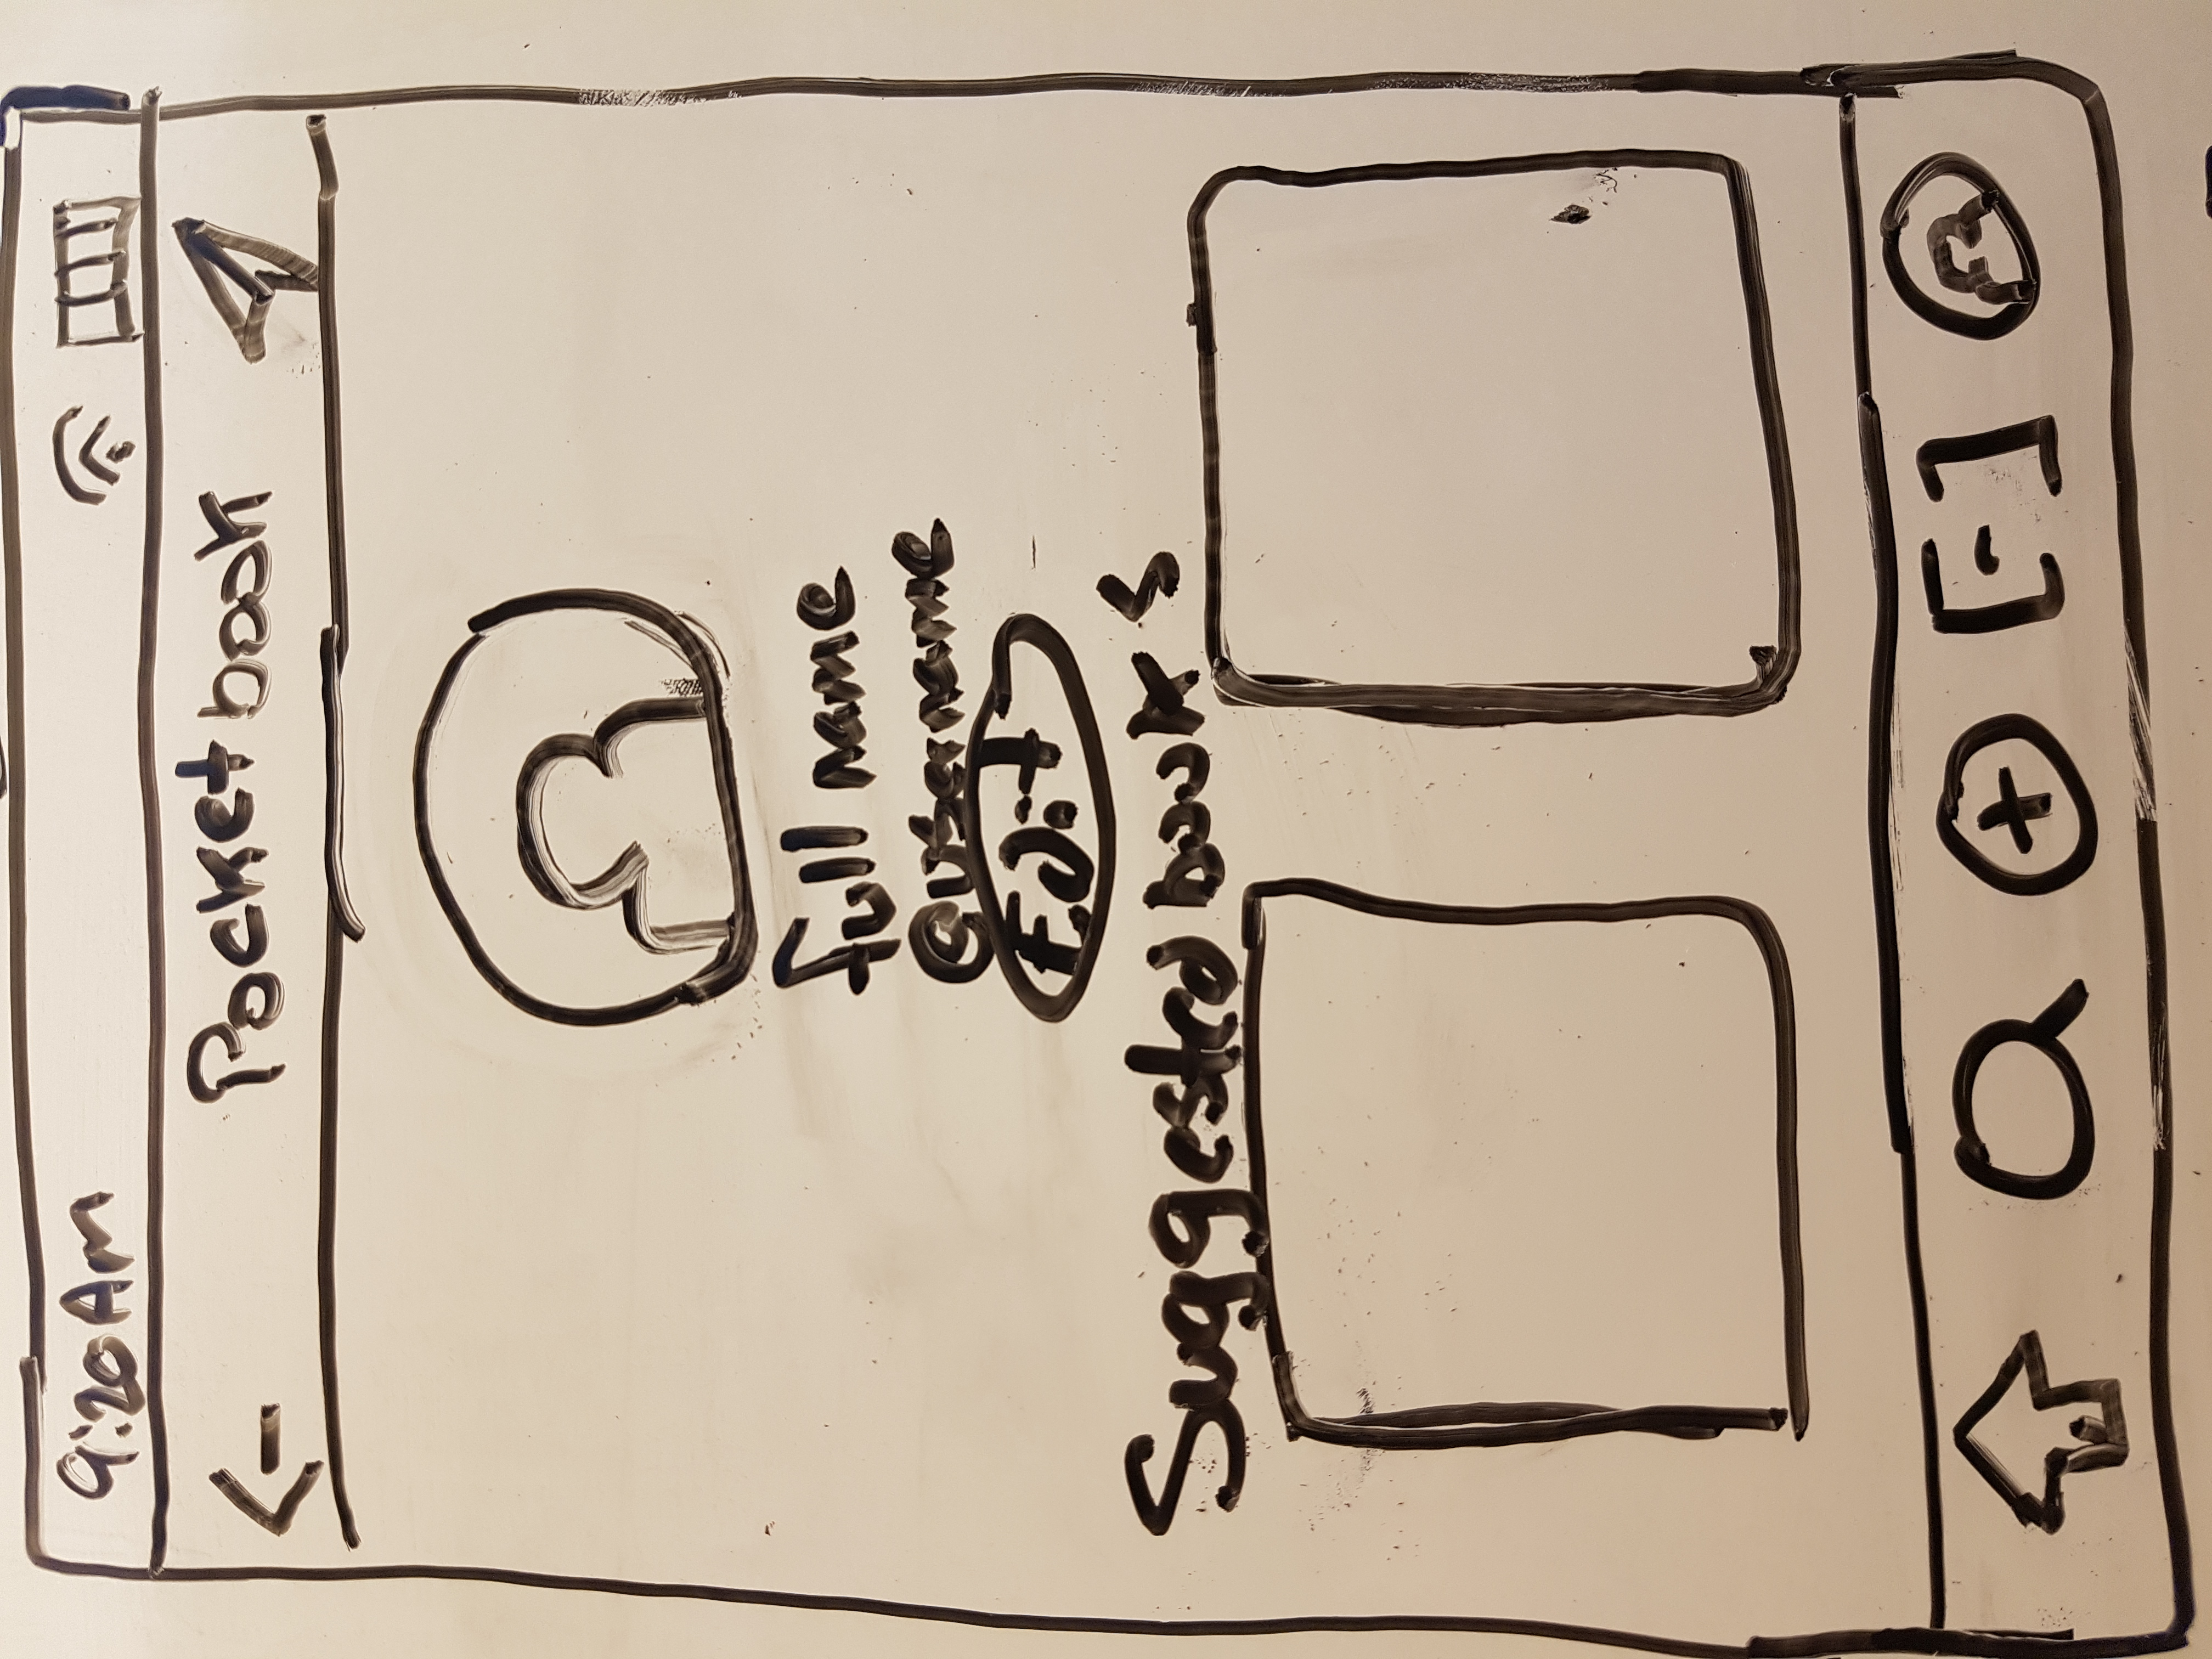 9:20 Am
Pocket book
full name
@username
Edit
Suggested books